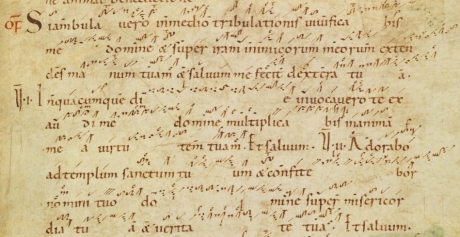 OF Siambula vero inmedio tribulationis uiuifica bis
me domine & super iram inimicorum meorum exten
des ma num tuam & saluum me fecit dextera tu a.
V. I. Inquacumque di e inuocauero te ex
au di me domine multiplica bis inanima
me a uirtu tem tuam. Et saluum. V. II. Adorabo
ad templum sanctum tu um & confite bor
nomini tuo do mine super misericor
dia tu a & uerita te tua. Et saluum.